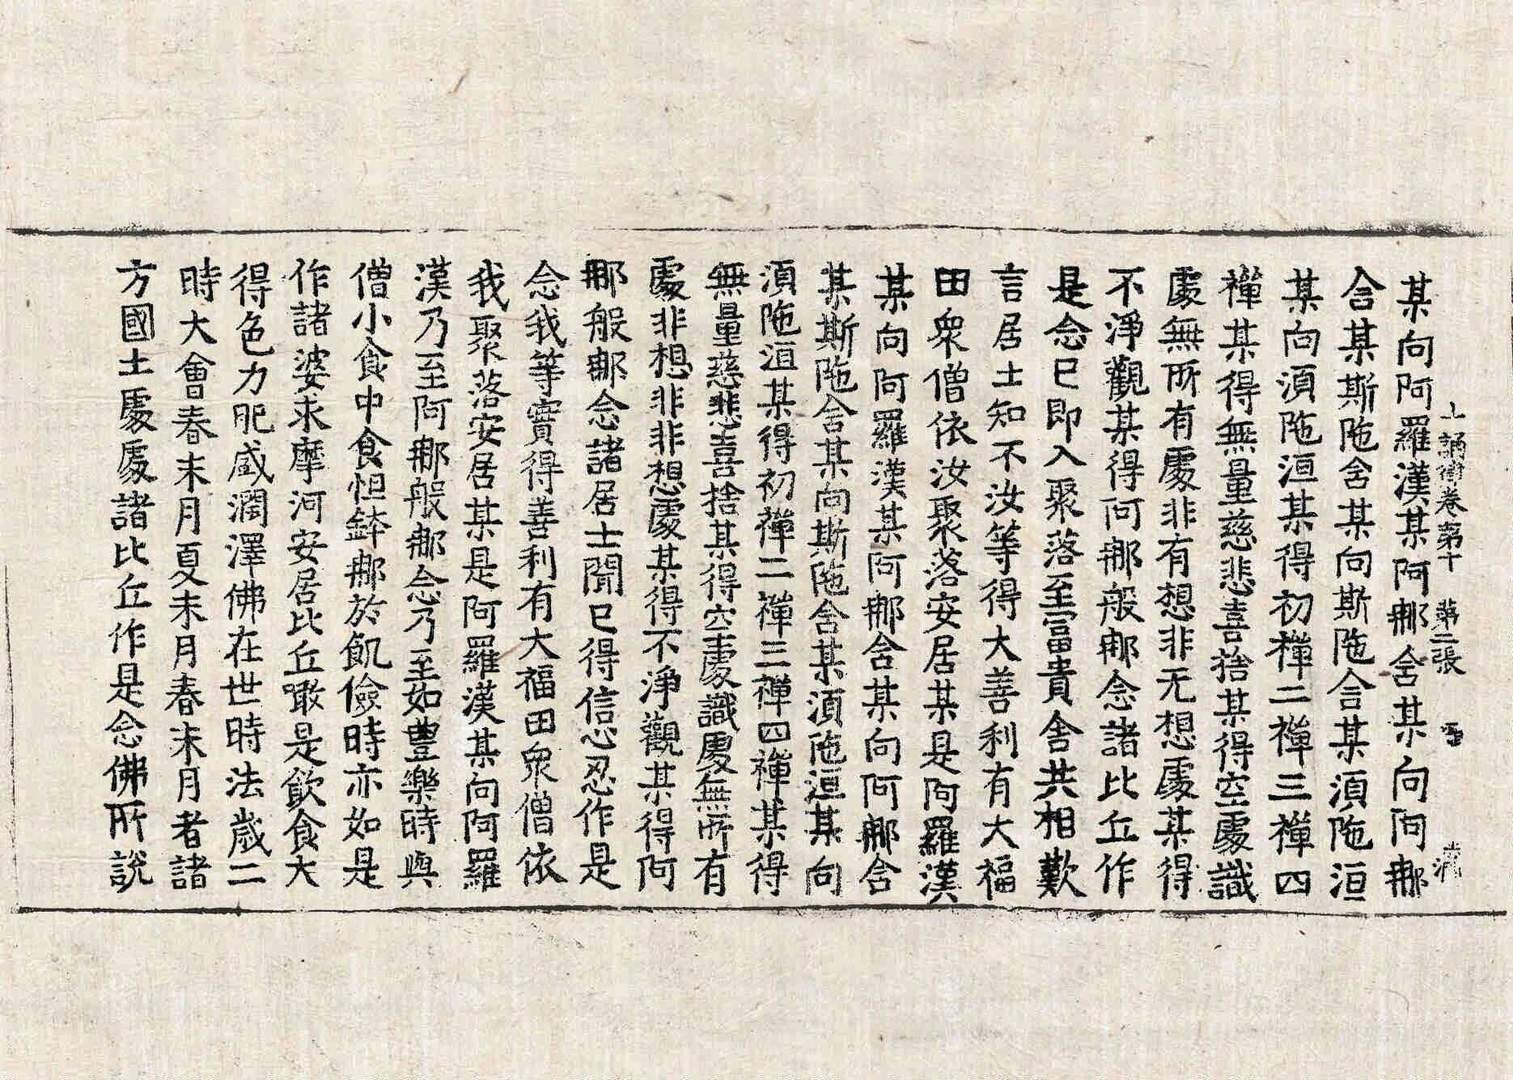 十誦律卷第十 第二張
某向阿羅漢某阿那含某向阿那
含某斯陁含某向斯陁含某湏陁洹
某向湏陁洹某得初禪二禪三禪四
禪某得無量慈悲喜捨某得空處識
處無所有處非有想非无想處某得
不淨觀某得阿那般那念諸比丘作
是念已即入聚落至冨貴舍共相歎
言居士知不汝等得大善利有大福
田衆僧依汝聚落安居某是阿羅漢
某向阿羅漢某阿那含某向阿那含
某斯陁含某向斯陁含某湏陁洹某向
湏陁洹某得初禪二禪三禪四禪某得
無量慈悲喜捨某得空處識處無所有
處非想非非想處某得不淨觀某得阿
那般那念諸居士聞已得信心忍作是
念我等實得善利有大福田衆僧依
我聚落安居某是阿羅漢某向阿羅
漢乃至阿那般那念乃至如豊樂時與
僧小食中食怛鉢那於飢儉時亦如是
作諸婆求摩河安居比丘噉是飲食大
得色力肥盛潤澤佛在世時法歲二
時大會春末月夏末月春末月者諸
方國土處處諸比丘作是念佛所說